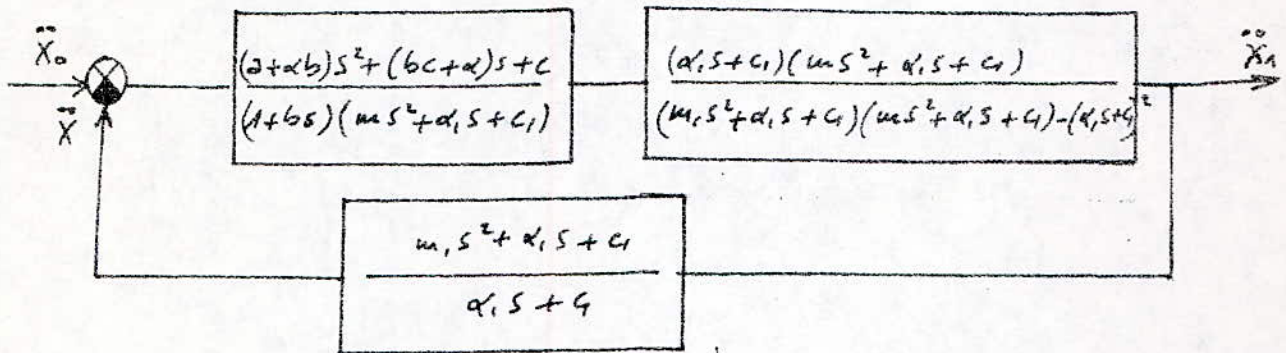 ẍ₀
ẍ
(a+αb)s²+(bc+α)s+c
(1+bs)(ms²+α₁s+c₁)
(α₁s+c₁)(ms²+α₁s+c₁)
(m₁s²+α₁s+c₁)(ms²+α₁s+c₁)-(α₁s+c₁)²
ẍ₁
m₁s²+α₁s+c₁
α₁s+c₁